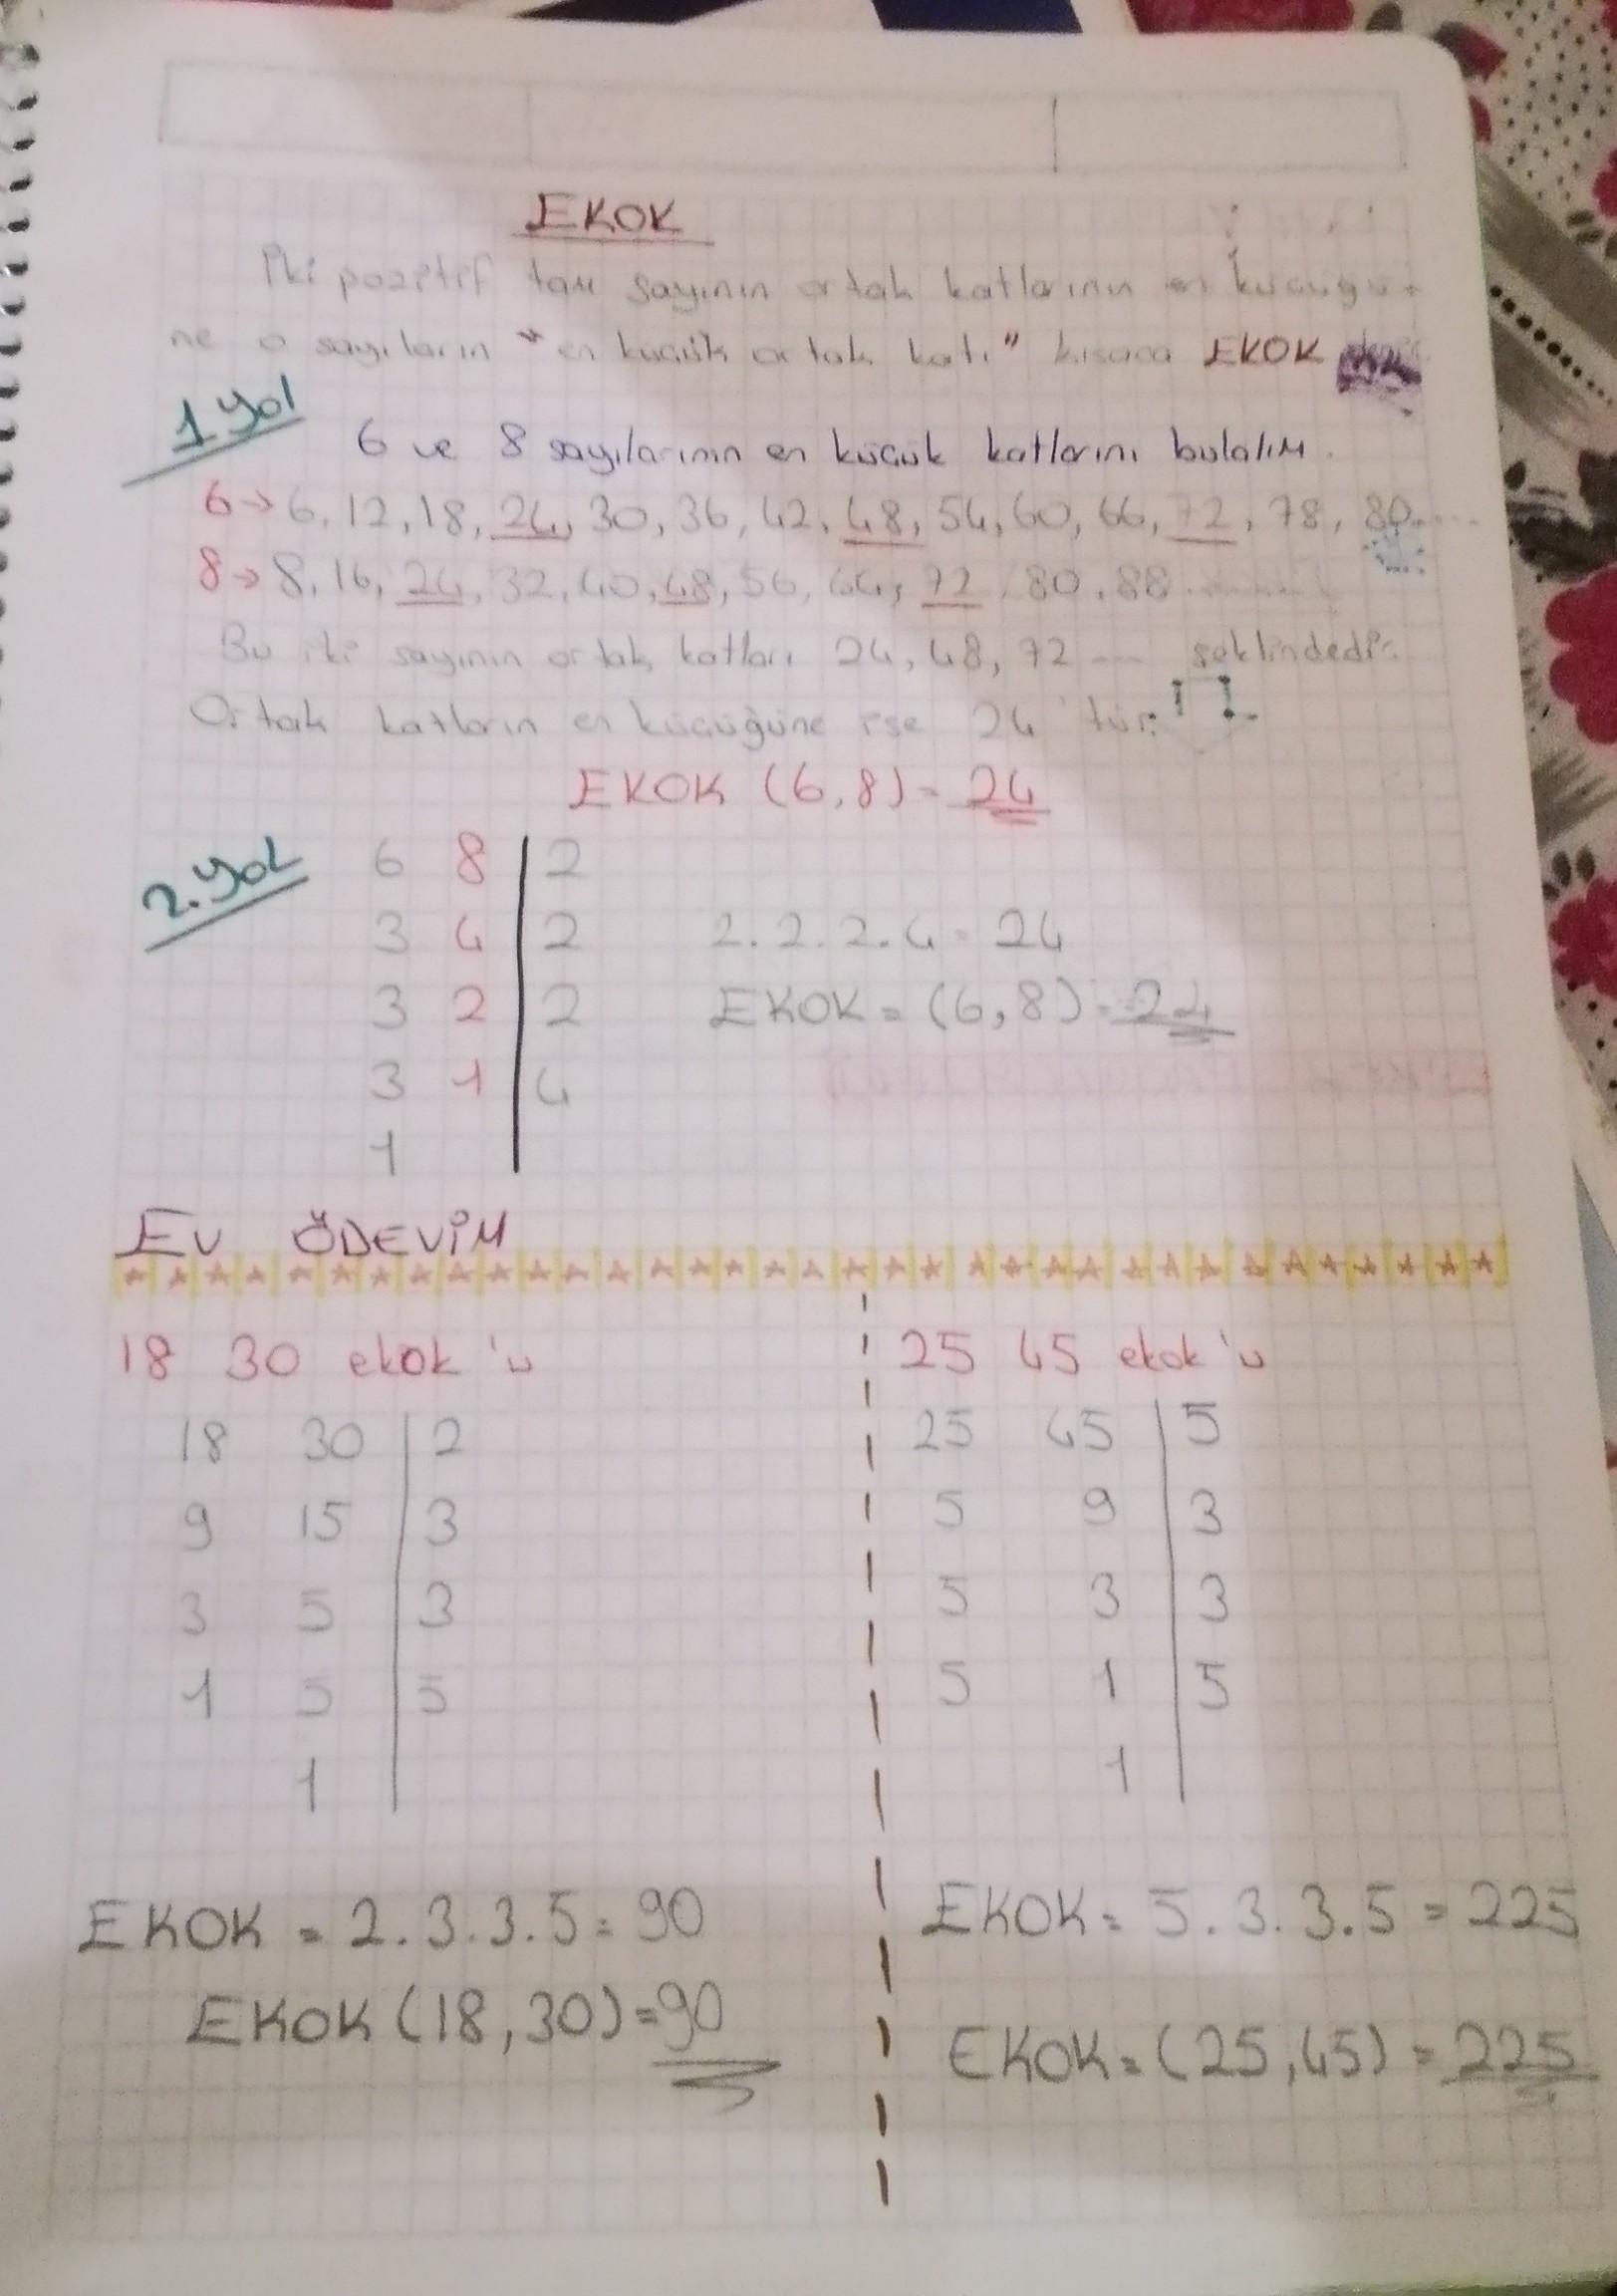 EKOK
İki pozitif tam sayının ortak katlarının en küçüğü-
ne o sayıların "en küçük ortak katı" kısaca EKOK
1 yol
6 ve 8 sayılarının en küçük katlarını bulalım.
6→6, 12, 18, 24, 30, 36, 42, 48, 54, 60, 66, 72, 78, 80.....
8→8, 16, 24, 32, 40, 48, 56, 64, 72, 80, 88
Bu iki sayının ortak katları 24, 48, 72 ---- şeklindedir.
Ortak katların en küçüğüne ise 24 'tür.
EKOK (6,8) = 24
2.yol
6 8 | 2
3 4 | 2 2.2.2.4 = 24
3 2 | 2 EKOK = (6,8) = 24
3 1 | 4
1
EV ÖDEVİM
18 30 ekok 'u
18 30 | 2
9 15 | 3
3 5 | 3
1 5 | 5
1
EKOK = 2.3.3.5 = 90
EKOK (18,30) = 90
25 45 ekok 'u
25 45 | 5
5 9 | 3
5 3 | 3
5 1 | 5
1
EKOK = 5.3.3.5 = 225
EKOK = (25,45) = 225